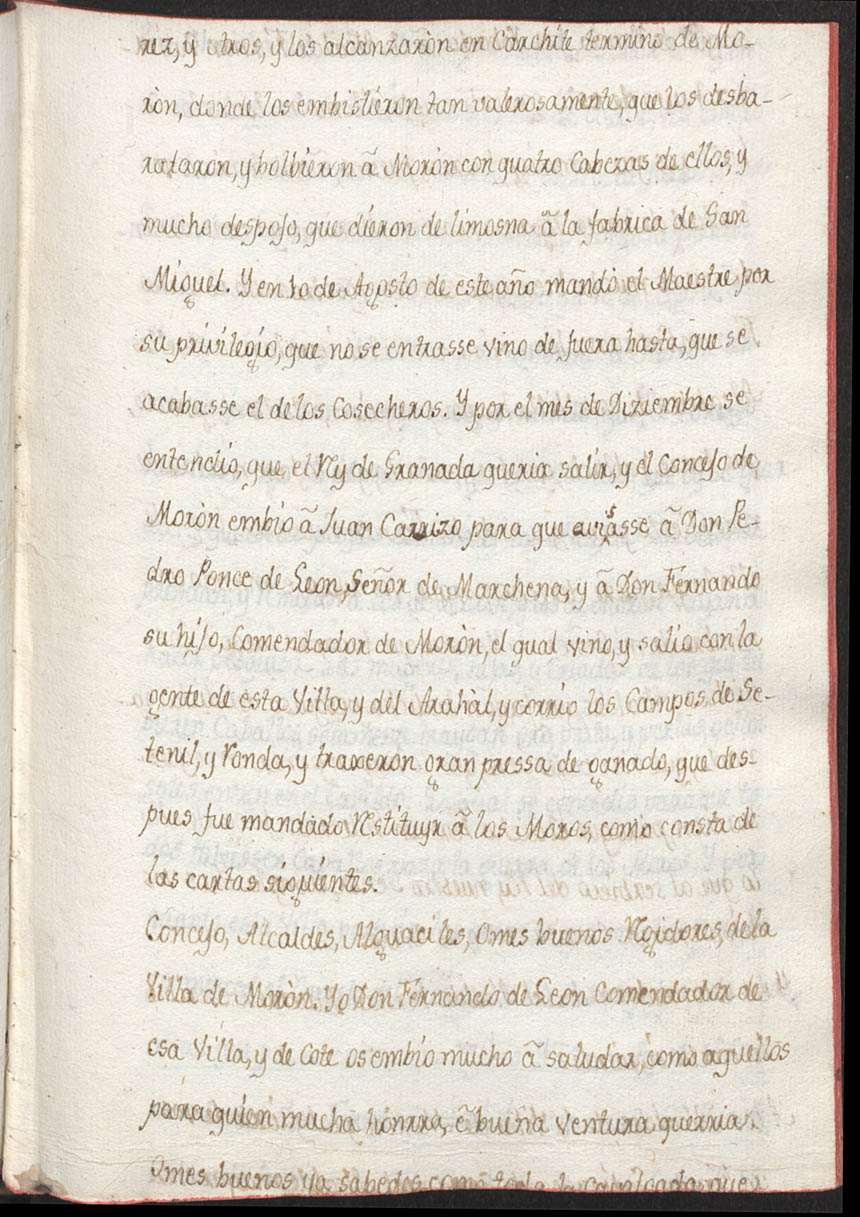 rez, y otros, y los alcanzaròn en Carchite termino de Mo-
ròn, donde los embistieron tan valerosamente, que los desba-
rataron, y bolbieron â Moròn con quatro Cabezas de ellos, y
mucho despojo, que dieron de limosna â la fabrica de San
Miguel. Y en 10 de Agosto de este año mandò el Maestre por
su privilegio, que no se entrasse vino de fuera hasta, que se
acabasse el de los Cosecheros. Y por el mes de Diziembre se
entendio, que el Rey de Granada queria salir, y el Concejo de
Moròn embio â Juan Carrizo para que avisasse â Don Pe-
dro Ponce de Leon, Señor de Marchena, y â Don Fernando
su hijo, Comendador de Moròn, el qual vino, y salio con la
gente de esta Villa, y del Arahàl, y corrio los Campos de Se-
tenil, y Ronda, y traxeron gran pressa de ganado, que des-
pues fue mandado Restituyr â los Moros, como consta de
las cartas siguientes.
Concejo, Alcaldes, Alguaciles, Omes buenos Regidores, de la
Villa de Moròn. Yo Don Fernando de Leon Comendador de
esa Villa, y de Cote os embio mucho â saludar, como aquellos
para quien mucha honrra, ê buena ventura querria.
Omes buenos ya sabedes como toda la cavalgada que